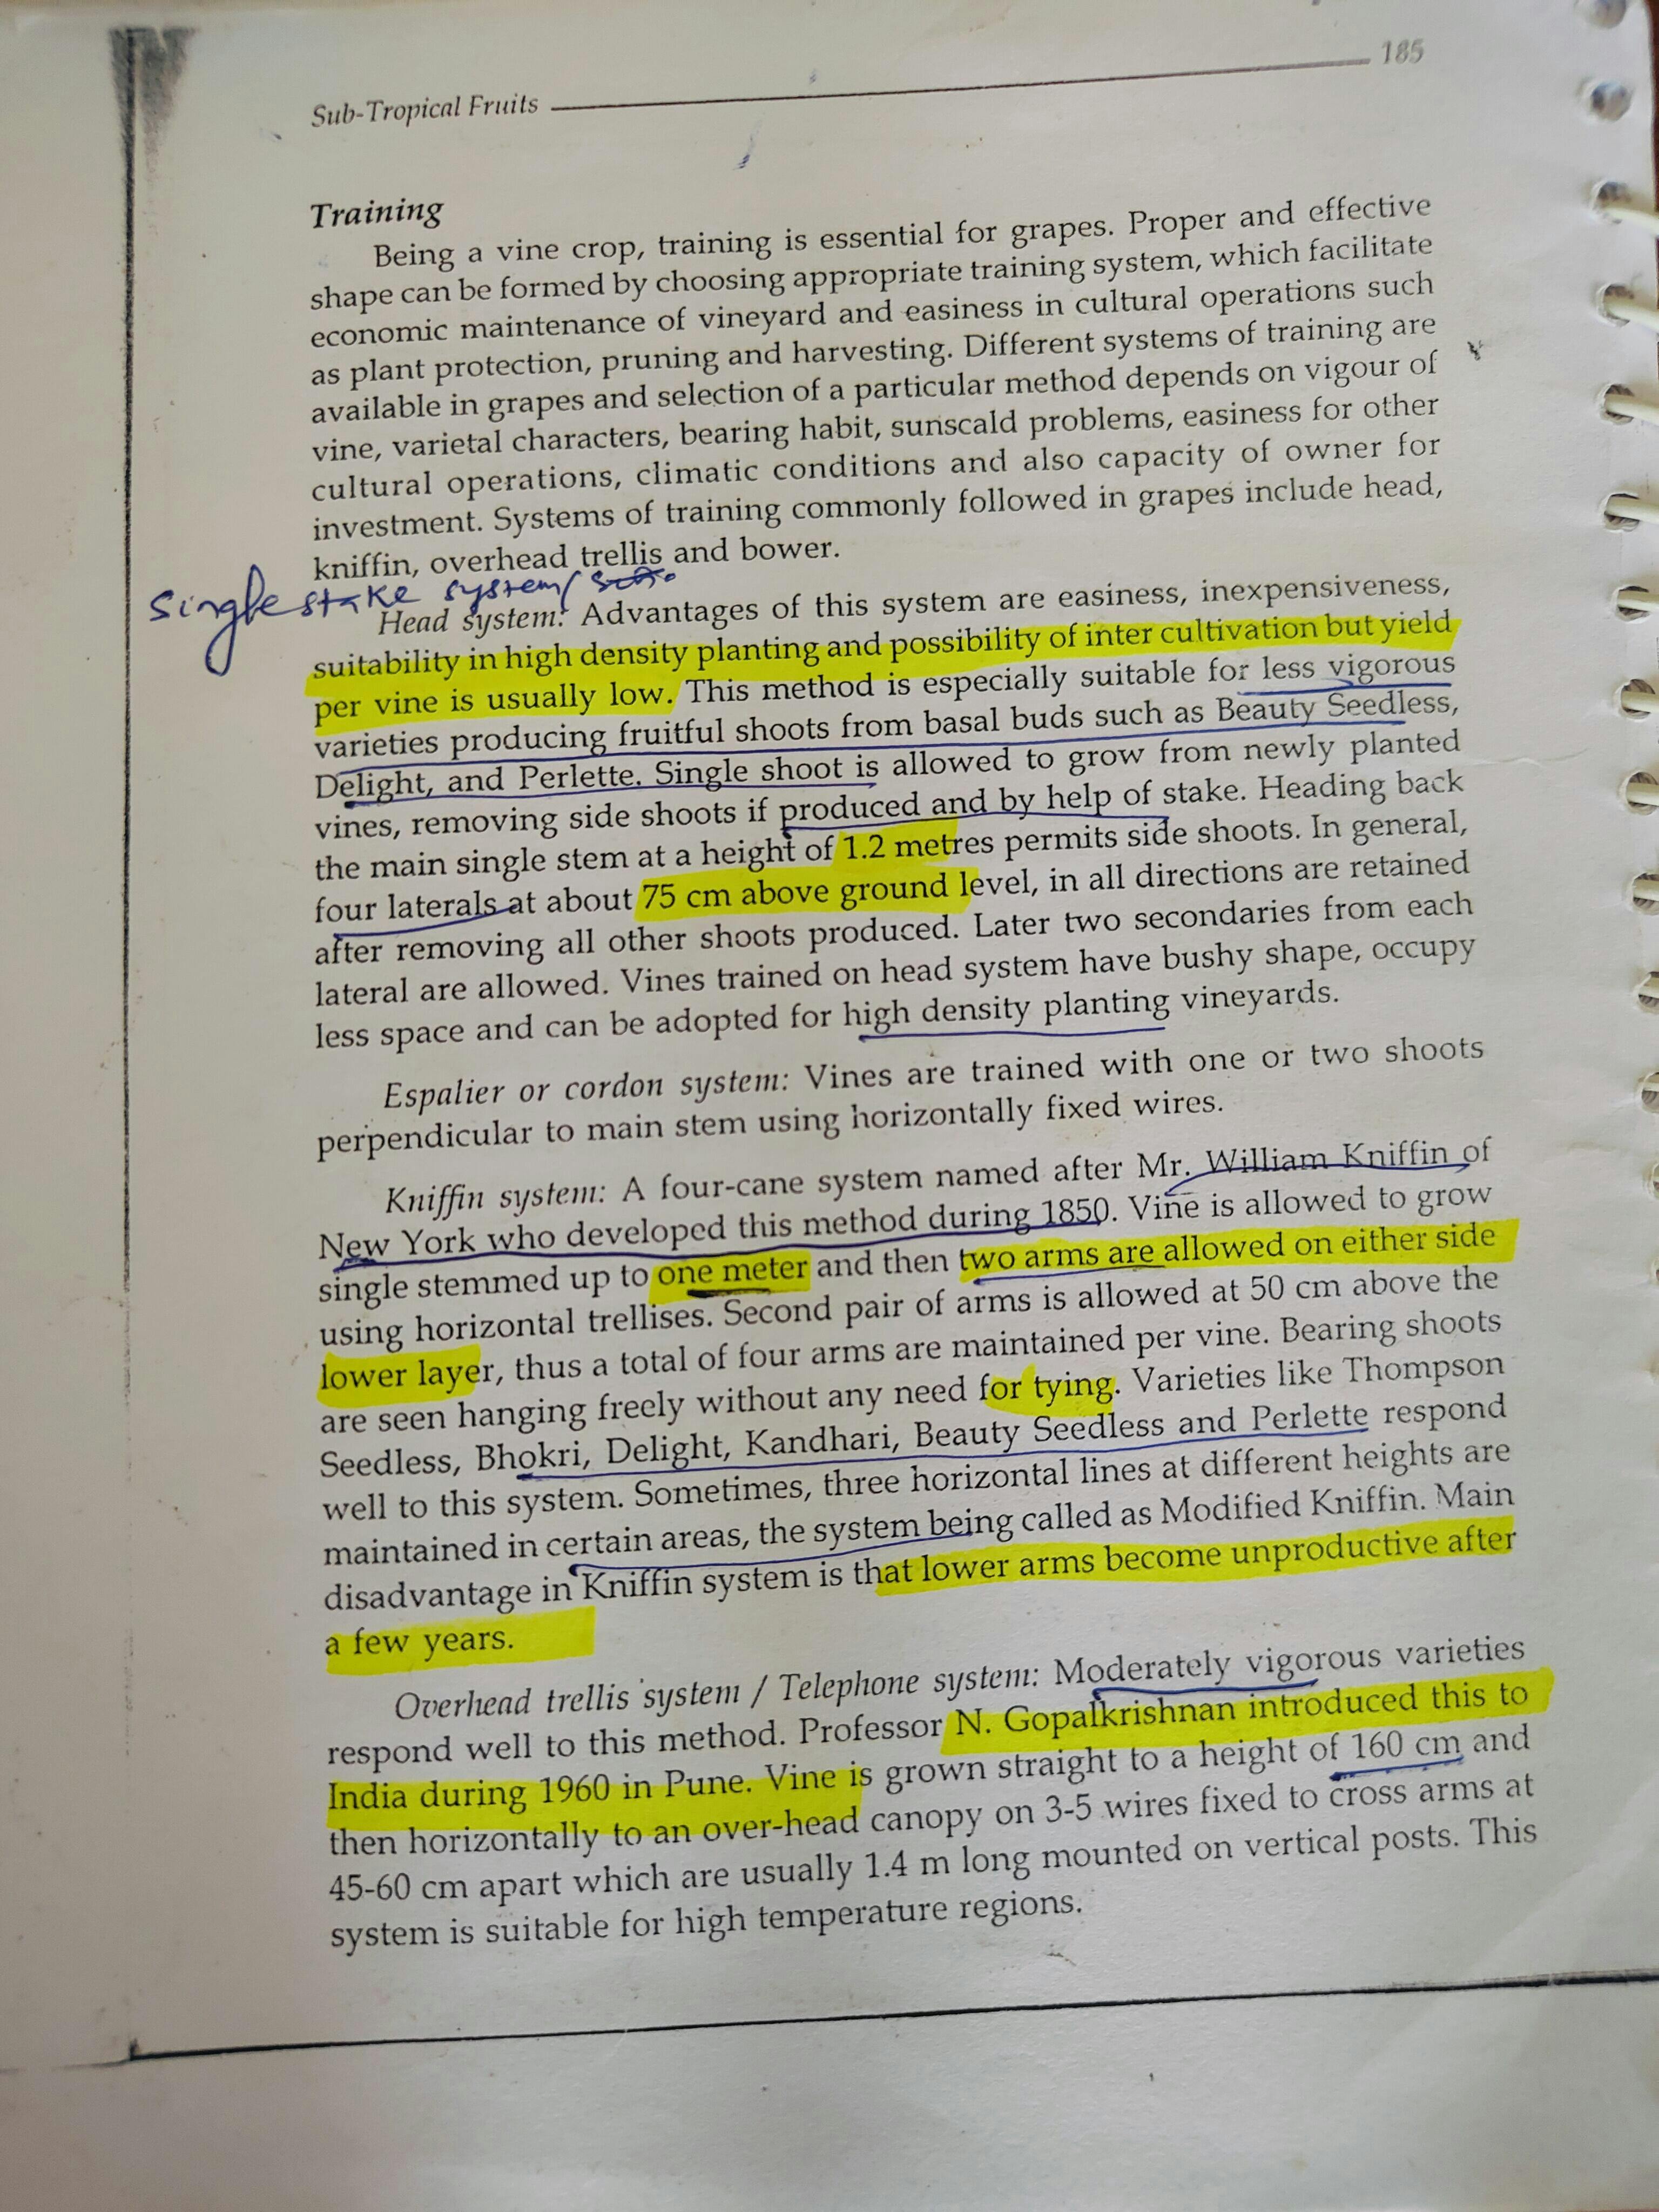 185
Sub-Tropical Fruits
Training
Being a vine crop, training is essential for grapes. Proper and effective
shape can be formed by choosing appropriate training system, which facilitate
economic maintenance of vineyard and easiness in cultural operations such
as plant protection, pruning and harvesting. Different systems of training are
available in grapes and selection of a particular method depends on vigour of
vine, varietal characters, bearing habit, sunscald problems, easiness for other
cultural operations, climatic conditions and also capacity of owner for
investment. Systems of training commonly followed in grapes include head,
kniffin, overhead trellis and bower.
Single stake system/
Head system: Advantages of this system are easiness, inexpensiveness,
suitability in high density planting and possibility of inter cultivation but yield
per vine is usually low. This method is especially suitable for less vigorous
varieties producing fruitful shoots from basal buds such as Beauty Seedless,
Delight, and Perlette. Single shoot is allowed to grow from newly planted
vines, removing side shoots if produced and by help of stake. Heading back
the main single stem at a height of 1.2 metres permits side shoots. In general,
four laterals at about 75 cm above ground level, in all directions are retained
after removing all other shoots produced. Later two secondaries from each
lateral are allowed. Vines trained on head system have bushy shape, occupy
less space and can be adopted for high density planting vineyards.
Espalier or cordon system: Vines are trained with one or two shoots
perpendicular to main stem using horizontally fixed wires.
Kniffin system: A four-cane system named after Mr. William Kniffin of
New York who developed this method during 1850. Vine is allowed to grow
single stemmed up to one meter and then two arms are allowed on either side
using horizontal trellises. Second pair of arms is allowed at 50 cm above the
lower layer, thus a total of four arms are maintained per vine. Bearing shoots
are seen hanging freely without any need for tying. Varieties like Thompson
Seedless, Bhokri, Delight, Kandhari, Beauty Seedless and Perlette respond
well to this system. Sometimes, three horizontal lines at different heights are
maintained in certain areas, the system being called as Modified Kniffin. Main
disadvantage in Kniffin system is that lower arms become unproductive after
a few years.
Overhead trellis system / Telephone system: Moderately vigorous varieties
respond well to this method. Professor N. Gopalkrishnan introduced this to
India during 1960 in Pune. Vine is grown straight to a height of 160 cm and
then horizontally to an over-head canopy on 3-5 wires fixed to cross arms at
45-60 cm apart which are usually 1.4 m long mounted on vertical posts. This
system is suitable for high temperature regions.